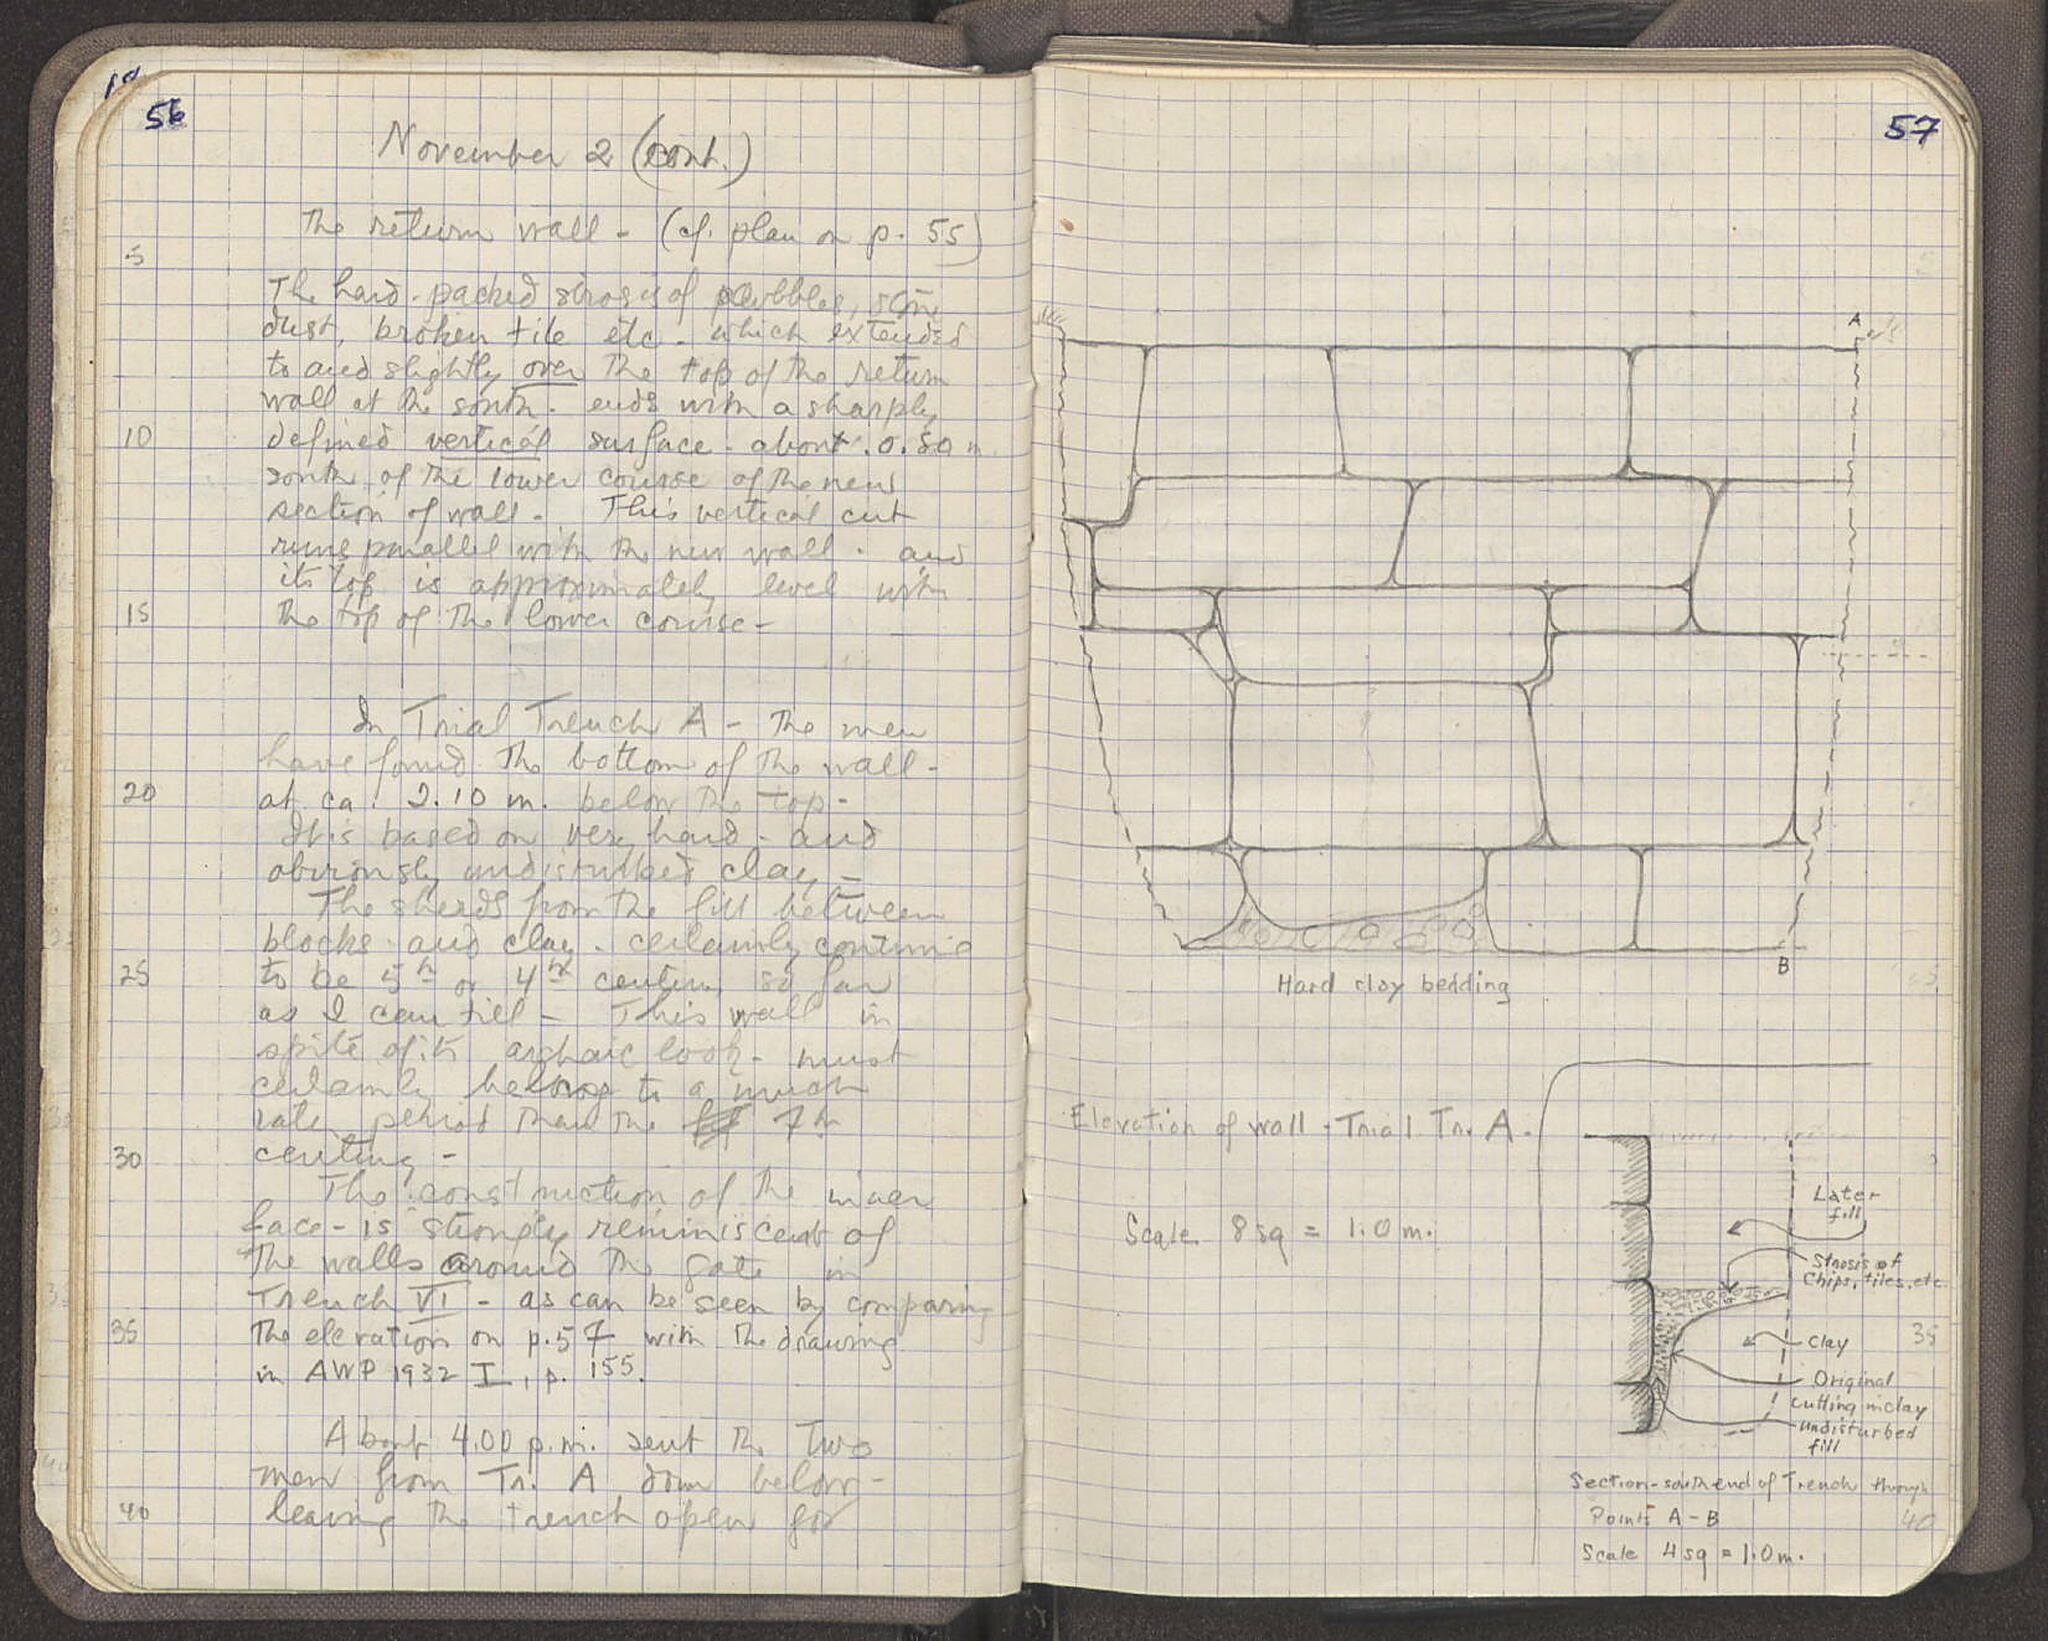 56
November 2 (cont.)
The return wall - (cf. plan on p. 55)
5
The hard-packed strosis of pebbles, stone
dust, broken tile etc. which extended
to and slightly over the top of the return
wall at the south. ends with a sharply
10 defined vertical surface - about 0.80 m
south of the lower course of the new
section of wall - This vertical cut
runs parallel with the new wall. and
its top is approximately level with
15 the top of the lower course -
In Trial Trench A - the men
have found the bottom of the wall -
20 at ca. 2.10 m. below the top -
It is based on very hard - and
obviously undisturbed clay -
The sherds from the fill between
blocks and clay. certainly continue
25 to be 5th or 4th century so far
as I can tell - This wall in
spite of its archaic look - must
certainly belong to a much
later period than the 7th
30 century -
The construction of the inner
face - is strongly reminiscent of
the walls around the gate in
Trench VI - as can be seen by comparing
35 the elevation on p. 57 with the drawing
in AWP 1932 I, p. 155.
About 4.00 p.m. sent the two
men from Tr. A down below -
40 leaving the trench open for
57
A
B
Hard clay bedding
Elevation of wall - Trial Tr. A.
Scale 8 sq = 1.0 m.
Later
fill
Strosis of
Chips, tiles, etc.
35
Clay
Original
cutting in clay
undisturbed
fill
Section - south end of Trench through
Points A - B
40
Scale 4 sq = 1.0 m.